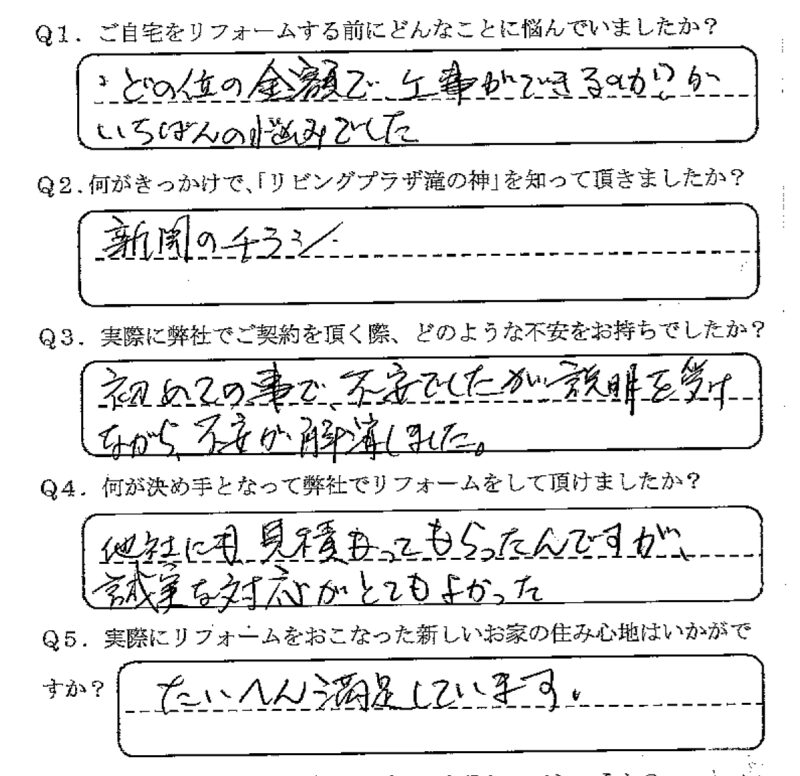 Q1. ご自宅をリフォームする前にどんなことに悩んでいましたか?
どの位の金額で、工事ができるのか?が
いちばんの悩みでした
Q2.何がきっかけで、「リビングプラザ滝の神」を知って頂きましたか?
新聞のチラシ.
Q3. 実際に弊社でご契約を頂く際、どのような不安をお持ちでしたか?
初めての事で、不安でしたが、説明を受け
ながら、不安が解消しました。
Q4. 何が決め手となって弊社でリフォームをして頂けましたか?
他社にも見積もってもらったんですが、
誠実な対応がとてもよかった
Q5. 実際にリフォームをおこなった新しいお家の住み心地はいかがで
すか?
たいへん満足しています。